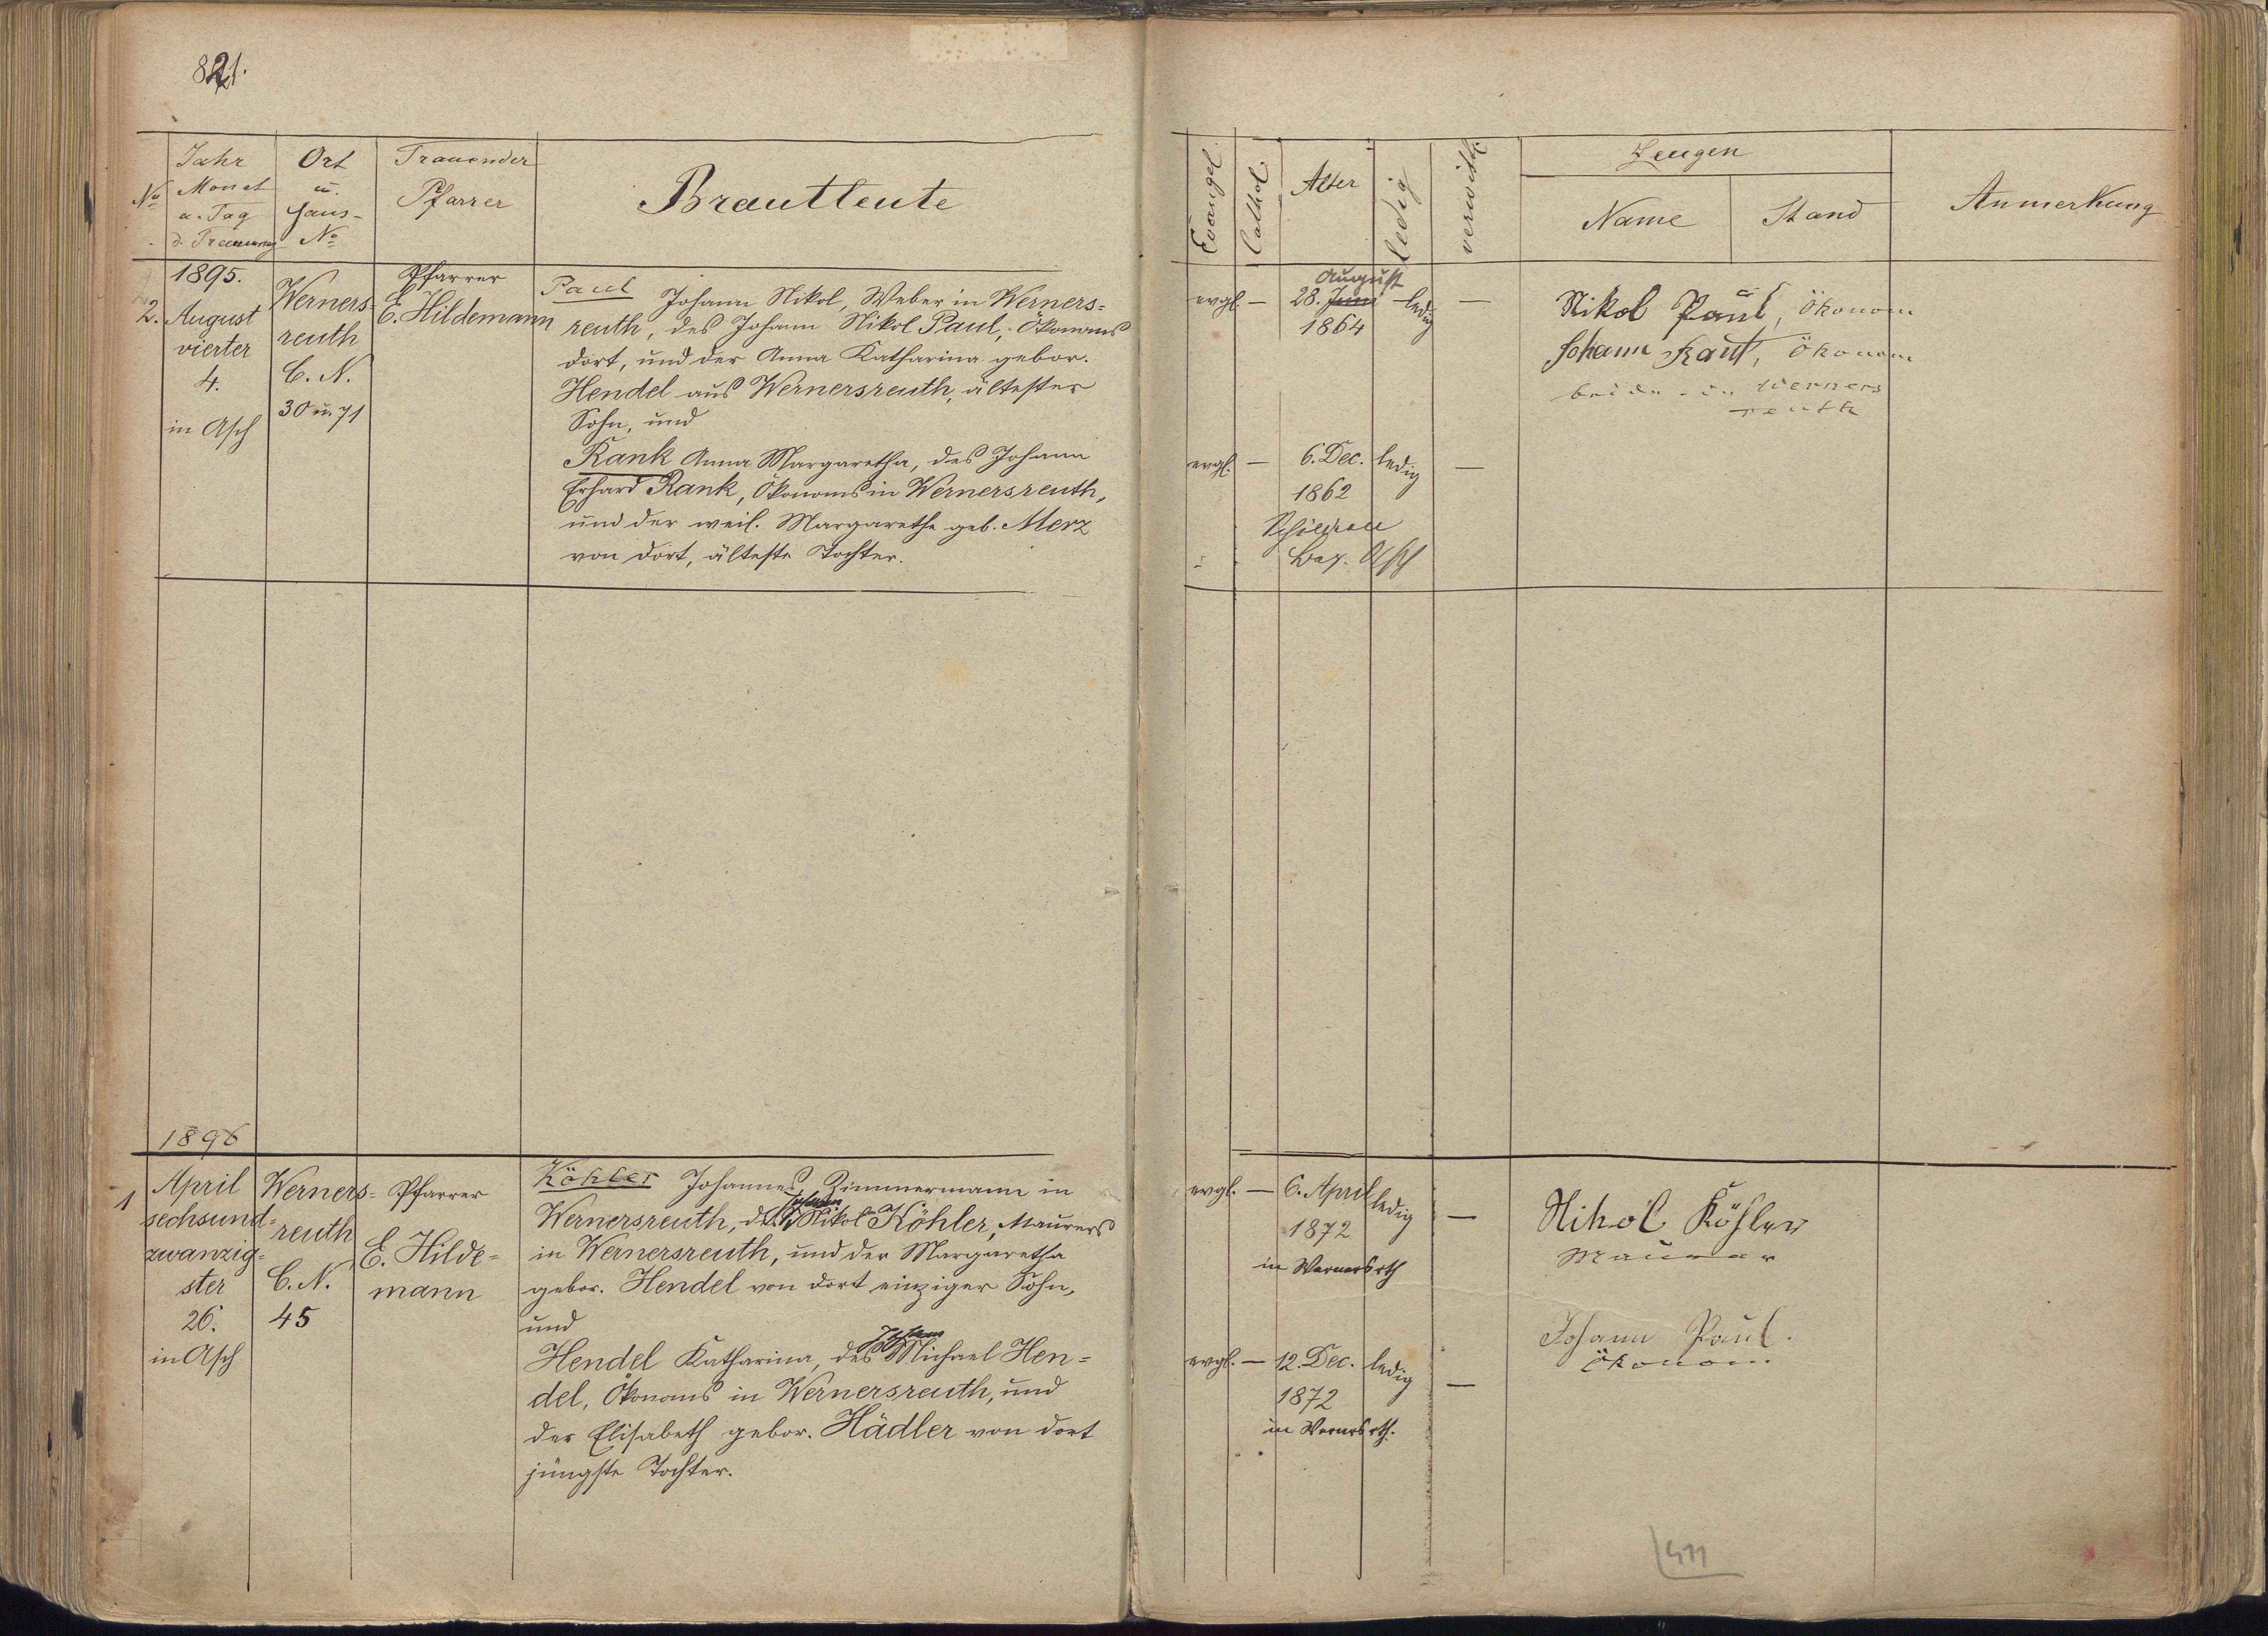 821.
No
Jahr
Monat
u. Tag
d. Trauung
Ort
u.
Haus-
No
Trauender
Pfarrer
Brautleute
Evangel.
Cathol.
Alter
ledig
verwith.
Zeugen
Name
Stand
Anmerkung
1895.
2. August
vierter
4.
in Asch
Werners-
reuth
C. N.
30 u. 71
Pfarrer
E. Hildemann
Paul Johann Nikol, Weber in Werners-
reuth, des Johann Nikol Paul, Ökonoms
dort, und der Anna Katharina gebor.
Hendel aus Wernersreuth, ältester
Sohn, und
Rank Anna Margaretha, des Johann
Erhard Rank, Ökonoms in Wernersreuth,
und der weil. Margarethe geb. Merz
von dort, älteste Tochter.
evgl. —
August
28. Juni
1864
ledig
—
Nikol Paul, Ökonom
Johann Rank, Ökonom
beide in Werners
reuth
evgl. —
6. Dec.
1862
ledig
—
Bez. Asch
1896
1
April
sechsund-
zwanzig-
ster
26.
in Asch
Werners-
reuth
C. N.
45
Pfarrer
E. Hilde-
mann
Köhler Johannes, Zimmermann in
Johann
Wernersreuth, des Nikol Köhler, Maurers
in Wernersreuth, und der Margaretha
gebor. Hendel von dort einziger Sohn,
und
Johann
Hendel Katharina, des Michael Hen-
del, Ökonoms in Wernersreuth, und
der Elisabeth gebor. Hädler von dort
jüngste Tochter.
evgl. —
6. April
1872
in Wernersrth
ledig
—
Nikol Köhler
Maurer
evgl. —
12. Dec.
1872
in Wernersrth.
ledig
—
Johann Paul.
Ökonom